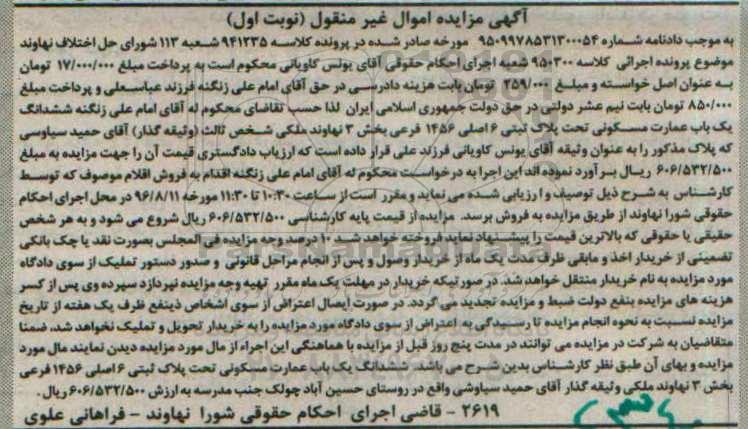 آگهی مزایده اموال غیر منقول (نوبت اول)
به موجب دادنامه شماره ۹۵۰۹۹۷۸۵۳۱۳۰۰۰۵۴ مورخه صادر شده در پرونده کلاسه ۹۴۱۲۳۵ شعبه ۱۱۳ شورای حل اختلاف نهاوند
موضوع پرونده اجرائی کلاسه ۹۵۰۳۰۰ شعبه اجرای احکام حقوقی آقای یونس کاویانی محکوم است به پرداخت مبلغ ۱۷/۰۰۰/۰۰۰ تومان
به عنوان اصل خواسته و مبلغ ۲۵۹/۰۰۰ تومان بابت هزینه دادرسی در حق آقای امام علی زنگنه فرزند عباسعلی و پرداخت مبلغ
۸۵۰/۰۰۰ تومان بابت نیم عشر دولتی در حق دولت جمهوری اسلامی ایران لذا حسب تقاضای محکوم له آقای امام علی زنگنه ششدانگ
یک باب عمارت مسکونی تحت پلاک ثبتی ۶ اصلی ۱۴۵۶ فرعی بخش ۳ نهاوند ملکی شخص ثالث (وثیقه گذار) آقای حمید سیاوسی
که پلاک مذکور را به عنوان وثیقه آقای یونس کاویانی فرزند علی قرار داده است که ارزیاب دادگستری قیمت آن را جهت مزایده به مبلغ
۶۰۶/۵۳۲/۵۰۰ ریال برآورد نموده اند این اجرا به درخواست محکوم له آقای امام علی زنگنه اقدام به فروش اقلام موصوف که توسط
کارشناس به شرح ذیل توصیف و ارزیابی شده می نماید و مقرر است از ساعت ۱۰:۳۰ تا ۱۱:۳۰ مورخه ۹۶/۸/۱۱ در محل اجرای احکام
حقوقی شورا نهاوند از طریق مزایده به فروش برسد. مزایده از قیمت پایه کارشناسی ۶۰۶/۵۳۲/۵۰۰ ریال شروع می شود و به هر شخص
حقیقی یا حقوقی که بالاترین قیمت را پیشنهاد نماید فروخته خواهد شد ۱۰ درصد وجه مزایده فی المجلس بصورت نقد یا چک بانکی
تضمینی از خریدار اخذ و مابقی ظرف مدت یک ماه از خریدار وصول و پس از انجام مراحل قانونی و صدور دستور تملیک از سوی دادگاه
مورد مزایده به نام خریدار منتقل خواهد شد. در صورتیکه خریدار در مهلت یک ماه مقرر تهیه وجه مزایده نپردازد سپرده وی پس از کسر
هزینه های مزایده بنفع دولت ضبط و مزایده تجدید می گردد. در صورت ایصال اعتراض از سوی اشخاص ذینفع ظرف یک هفته از تاریخ
مزایده نسبت به نحوه انجام مزایده تا رسیدگی به اعتراض از سوی دادگاه مورد مزایده را به خریدار تحویل و تملیک نخواهد شد، ضمنا
متقاضیان به شرکت در مزایده می توانند در مدت پنج روز قبل از مزایده با هماهنگی این اجراء از مال مورد مزایده دیدن نمایند مال مورد
مزایده و بهای آن طبق نظر کارشناس بدین شرح می باشد. ششدانگ یک باب عمارت مسکونی تحت پلاک ثبتی ۶ اصلی ۱۴۵۶ فرعی
بخش ۳ نهاوند ملکی وثیقه گذار آقای حمید سیاوشی واقع در روستای حسین آباد چولک جنب مدرسه به ارزش ۶۰۶/۵۳۲/۵۰۰ ریال.
۲۶۱۹ - قاضی اجرای احکام حقوقی شورا نهاوند - فراهانی علوی